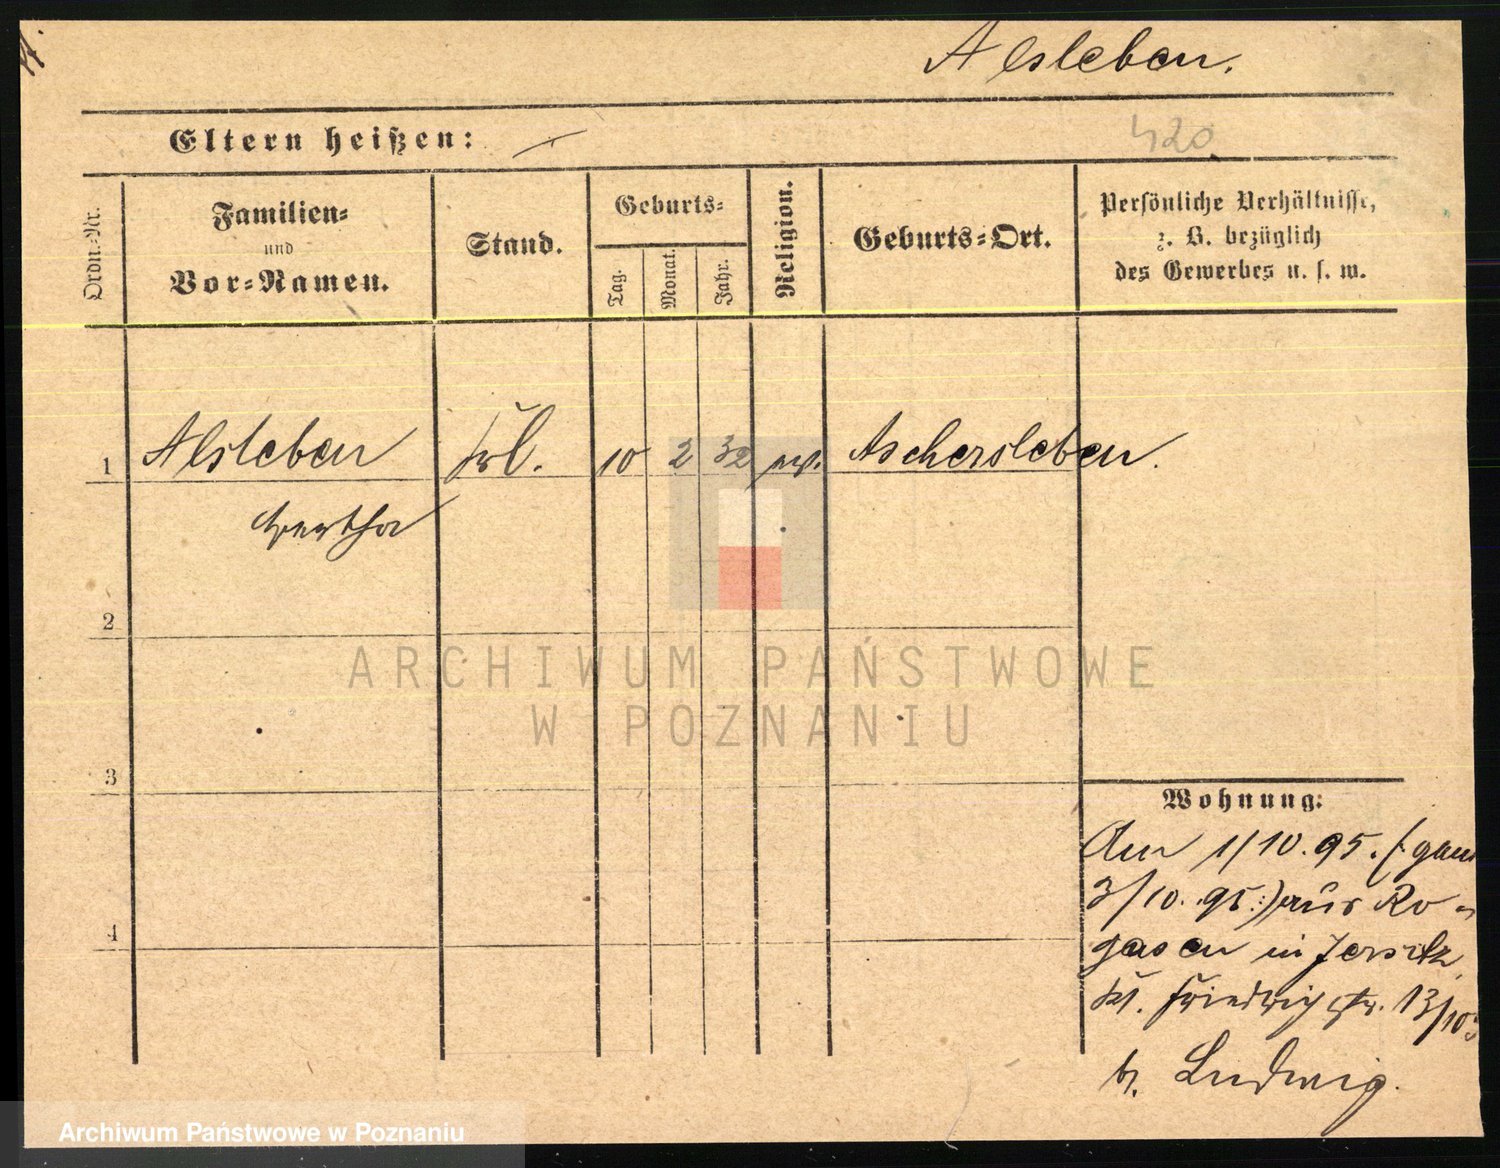 A.
Alsleben.
Eltern heißen: —
420
Ordn.-Nr.
Familien-
und
Vor-Namen.
Stand.
Geburts-
Tag.
Monat.
Jahr.
Religion.
Geburts-Ort.
Persönliche Verhältnisse,
z. B. bezüglich
des Gewerbes u. s. w.
1 Alsleben Frl. 10 2 32 ev. Aschersleben.
Bertha
2
ARCHIWUM PAŃSTWOWE
W POZNANIU
3
Wohnung:
Am 1/10. 95. (: gem
3/10. 95 :) aus Ro-
gasen in Jersitz
kl. Friedrichstr. 13/10
4
b. Ludwig.
Archiwum Państwowe w Poznaniu